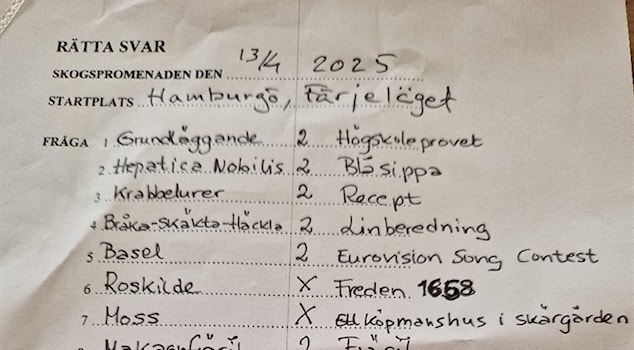 RÄTTA SVAR
SKOGSPROMENADEN DEN 13/4 2025
STARTPLATS Hamburgö, Färjeläget
FRÅGA 1 Grundläggande 2 Högskoleprovet
2 Hepatica Nobilis 2 Blåsippa
3 Krabbelurer 2 Recept
4 Bråka-skäkta-häckla 2 Linberedning
5 Basel 2 Eurovision Song Contest
6 Roskilde X Freden 1658
7 Moss X köpmanshus i skärgården
8 2 Fjäril